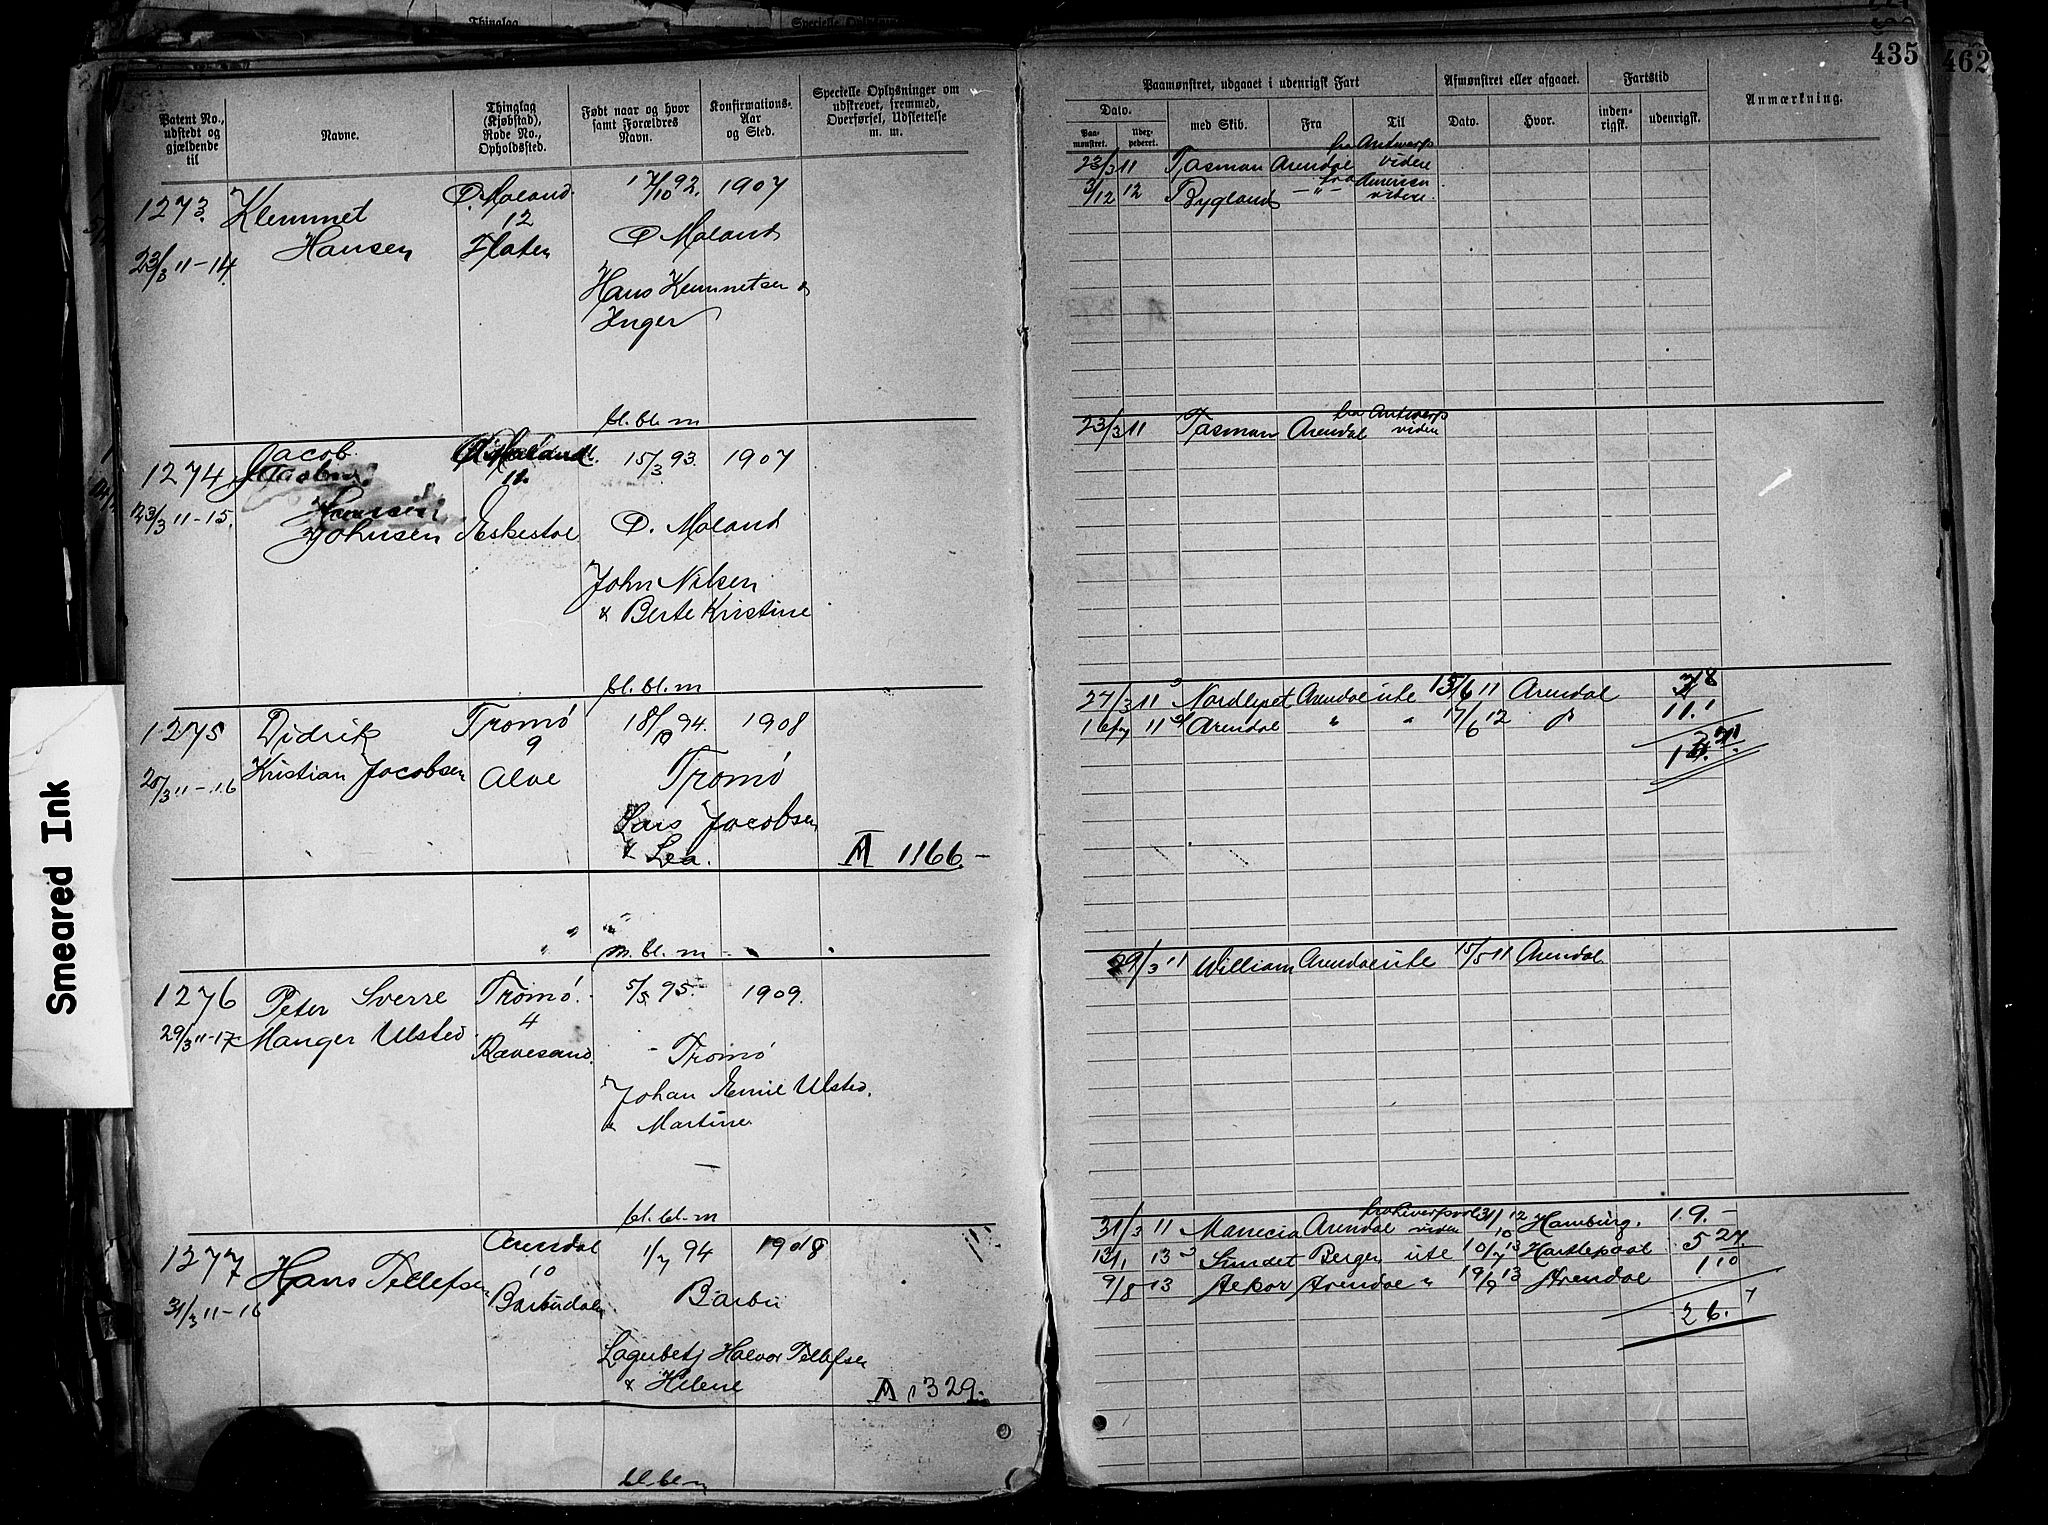 435
462
Smeared Ink
Patent No., udstedt og gjældende til
Navne.
Thinglag (Kjøbstad), Rode No., Opholdssted.
Født naar og hvor samt Forældres Navn.
Konfirmations-Aar og Sted.
Specielle Oplysninger om udskrevet, fremmed, Overførsel, Udslettelse m. m.
Paamønstret, udgaaet i udenrigsk Fart
Afmønstret eller afgaaet.
Fartstid
Anmærkning.
Dato.
Paa-mønstret.
Uder-pederet.
med Skib.
Fra
Til
Dato.
Hvor.
inden-rigsk.
udenrigsk.
1273. Klemmet Hansen
23/3 11-14.
Ø. Moland. 12 Flaten
17/10 92. 1907
Ø Moland
Hans Klemmetsen &
Inger
bl. bl. m
23/3 11 Tasman Arendal fra Antwerp videre
3/12 12 Bygland —"— fra America videre.
1274 Jacob Johnsen
23/3 11-15.
Ø. Moland. 11. Eskestøl
15/3 93. 1907
Ø. Moland
John Nilsen
& Berte Kirstine
bl. bl. m
23/3 11 Tasman Arendal fra Antwerp videre
1275 Didrik
Kristian Jacobsen
Tromø 9 Alve
18/10 94. 1908
Tromø
Lars Jacobsen
& Lea.
A 1166.-
27/3 11 Arendal ute 15/6 11 Arendal
11 Arendal " " 17/6 12
11.1
m. bl. m
1276 Peter Sverre
29/3 11-17 Manger Ulsted
Tromø. 4 Ravesand.
5/5 95. 1909.
Tromø
Johan Emil Ulsted.
& Martine
bl. bl. m
29/3 11 William Arendal ute 15/5 11 Arendal
1277 Hans Tellefsen
31/3 11-16
Arendal 10 Barbudalen
1/7 94 1908
Barbu
Halvor Tellefsen
& Helene
A 1329.-
31/3 11 Arendal fra Liverpool viden 31/10 12 Hamburg. 1.9.-
13/1 13 Sundet Bergen ute 10/7 13 Hartlepool 5 27.
9/8 13 Arendal " 19/9 13 Arendal 1 10
26. 7
bl. bl. m